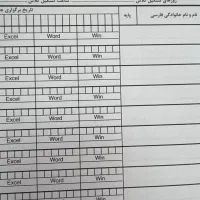 روزهای تشکیل کلاس ساعت تشکیل کلاس
نام و نام خانوادگی فارسی پایه تاریخ برگزاری
Excel Word Win
Excel Word Win
Excel Word Win
Excel Word Win
Excel Word Win
Excel Word Win
Excel Word Win
Excel Word Win